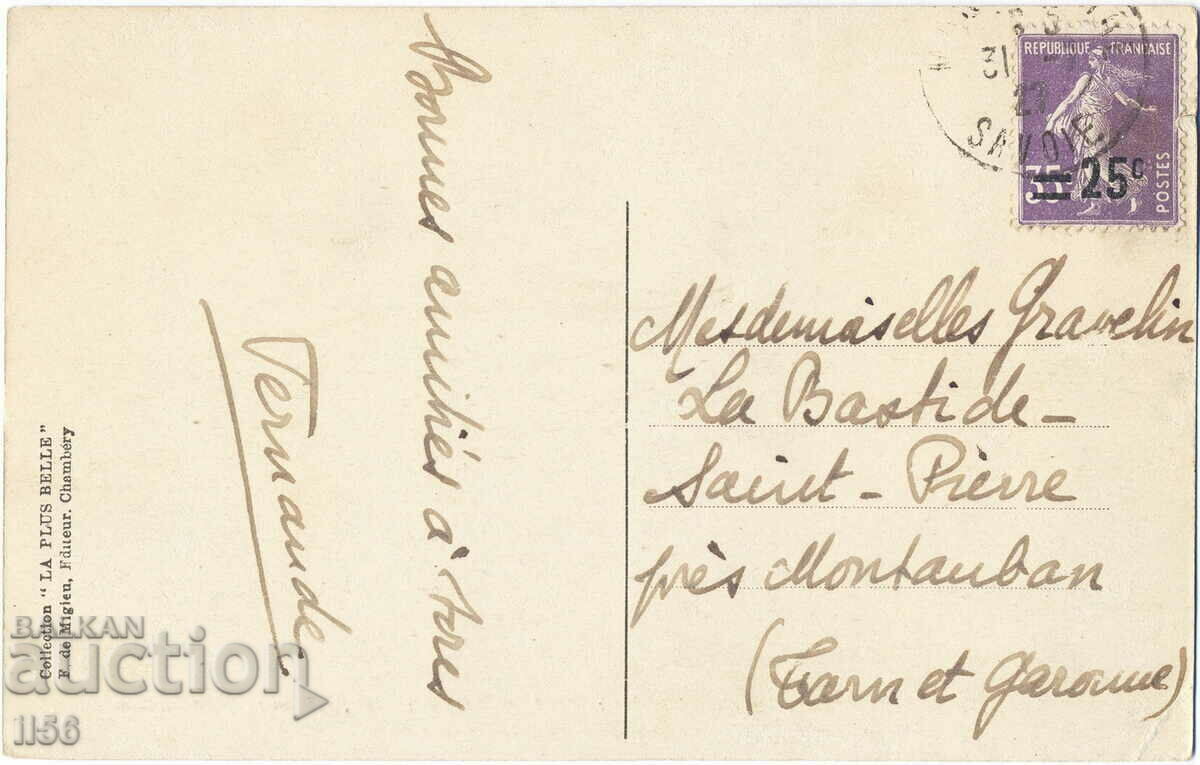 Bonnes amitiés à tous
Fernande
Collection "LA PLUS BELLE"
F. de Migieu, Editeur. Chambéry
31
27
SAVOIE
RÉPUBLIQUE FRANÇAISE
35
25c
POSTES
Mesdemoiselles Gravelin
La Bastide-
Saint-Pierre
près Montauban
(Tarn et Garonne)
BALKAN
auction
1156